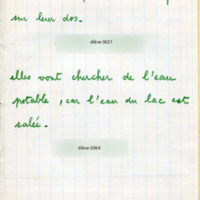 sur leur dos.
élève 0021
elles vont chercher de l'eau
potable, car l'eau du lac est
salée.
élève 0064